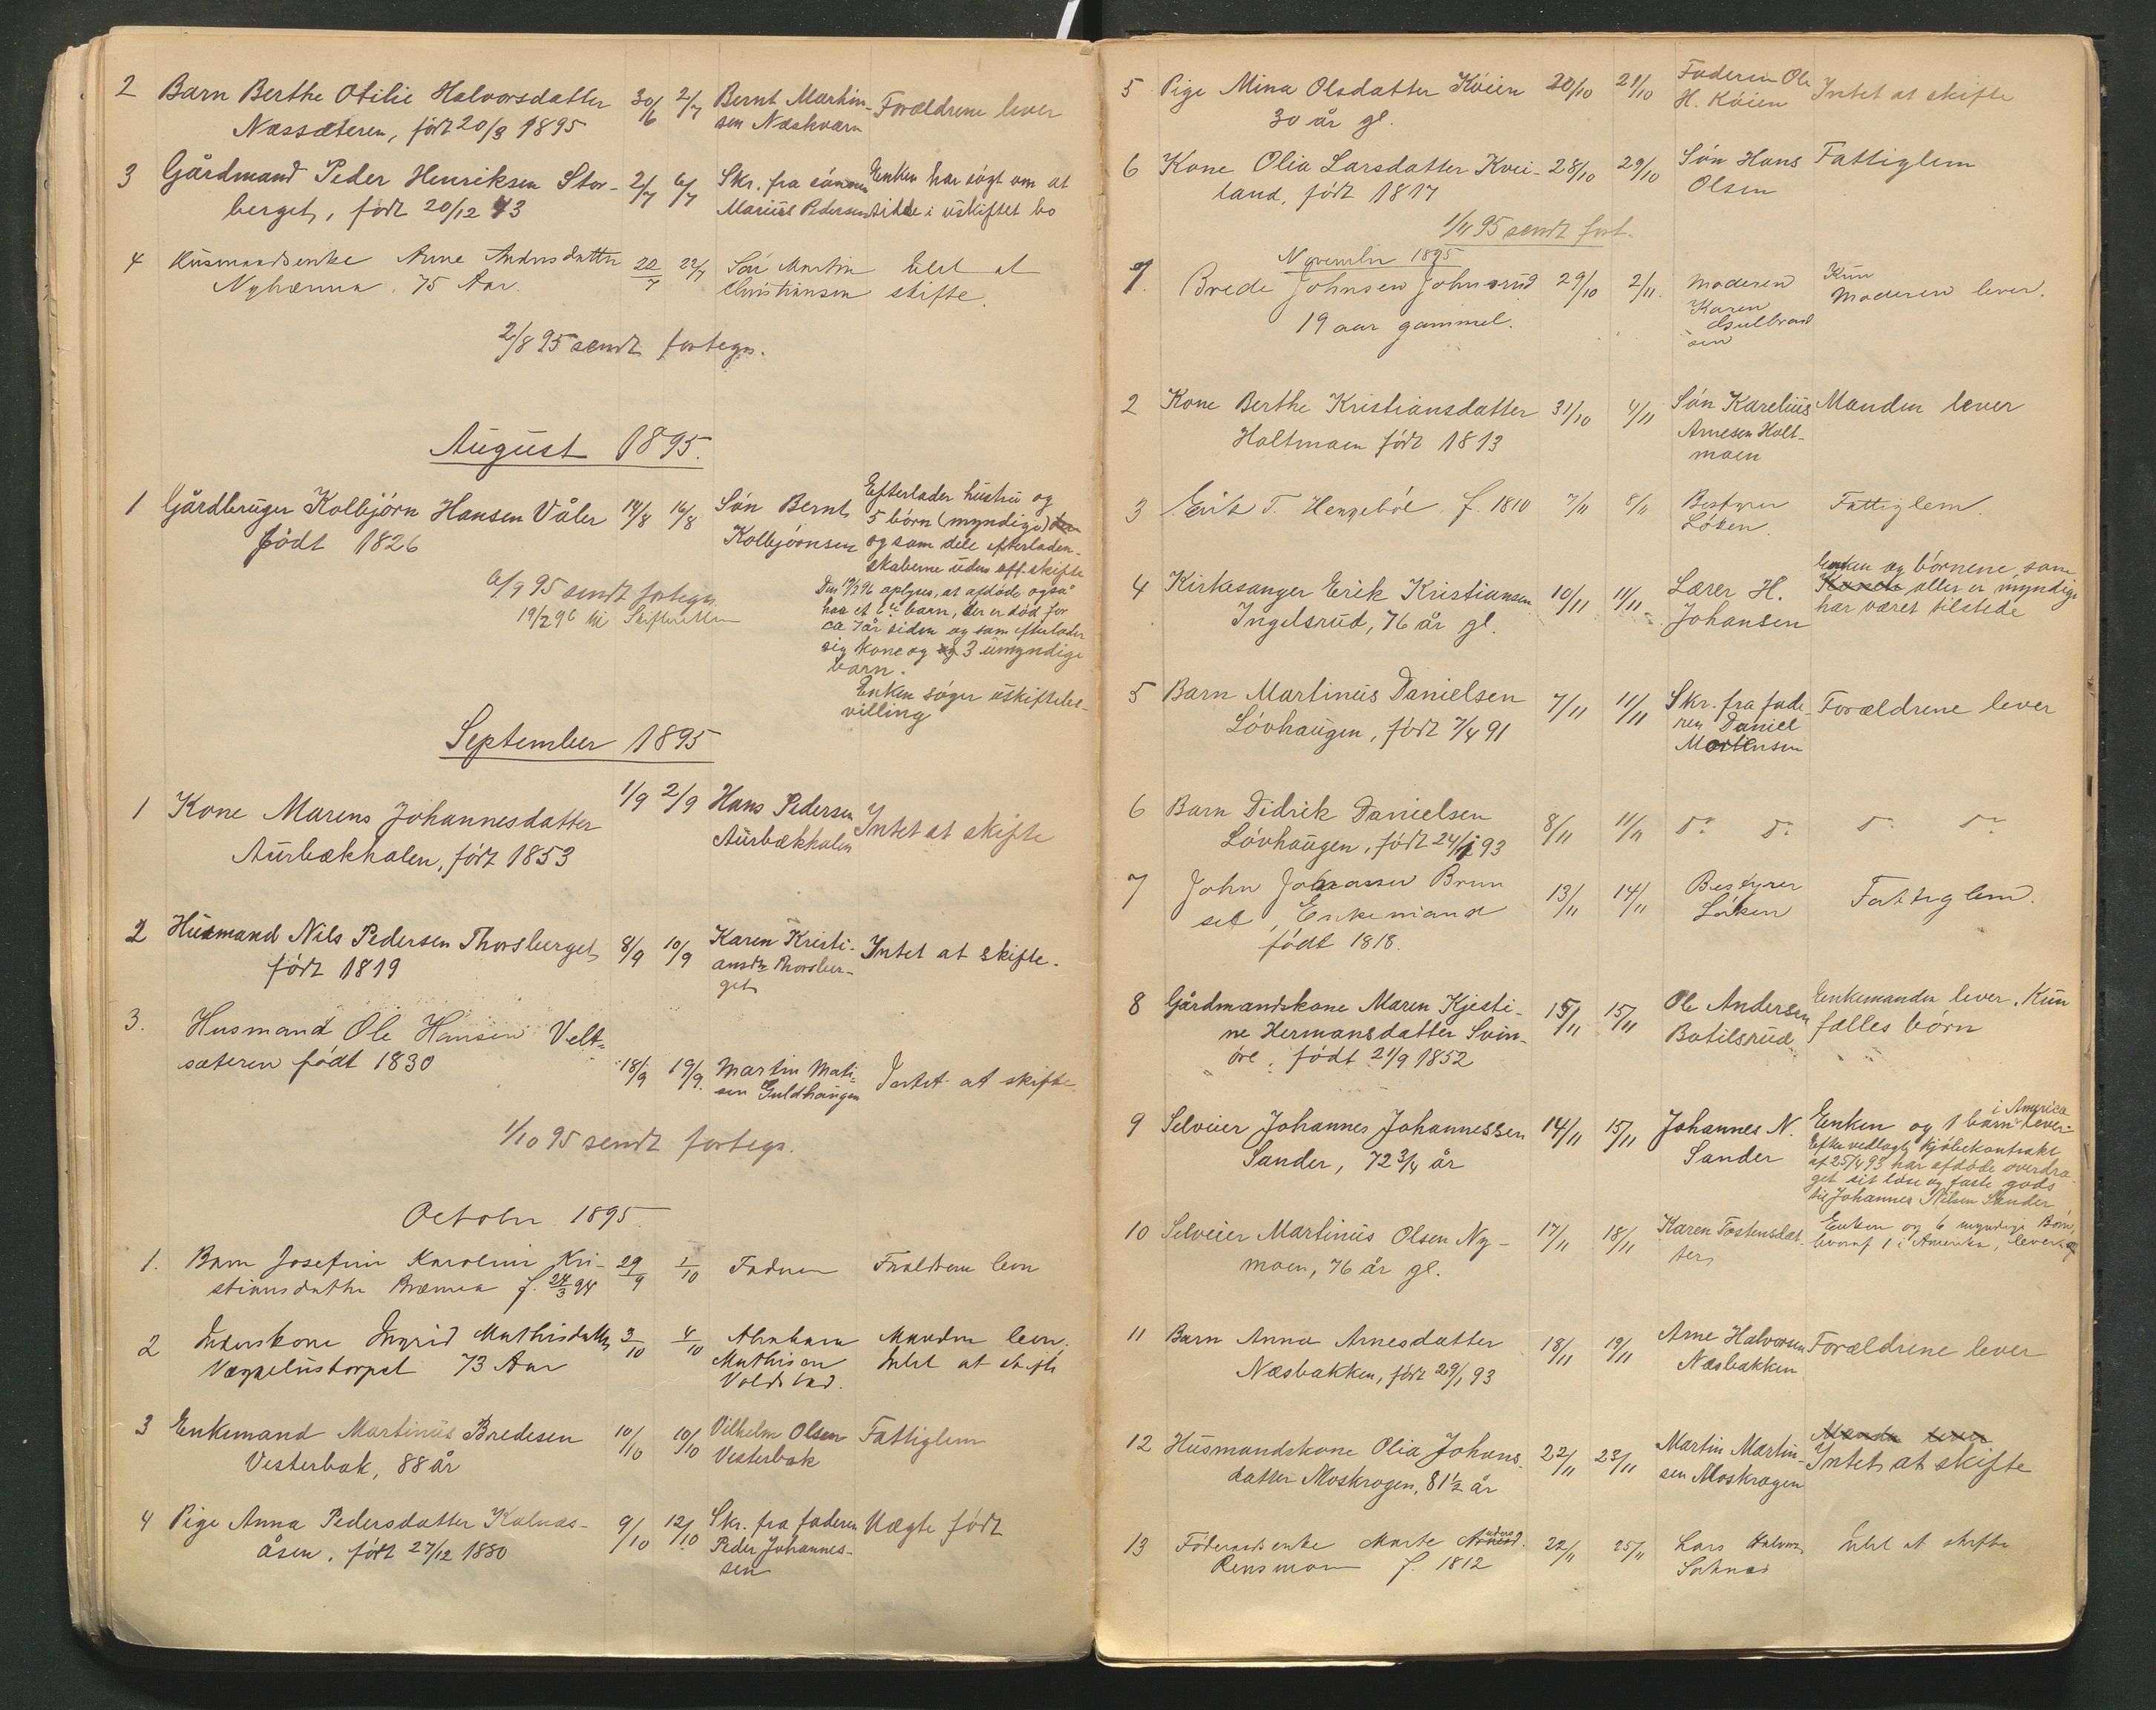 2 Barn Berthe Otilie Halvorsdatter 30/6 2/7 Bernt Martin- Forældrene lever
Næssæteren, født 20/3 1895 sen Næskværn
3 Gårdmand Peder Henriksen Stor- 2/7 6/7 Skr. fra sønnen Enken har søgt om at
berget, født 20/12 43 Marius Pedersen sidde i uskiftet bo
4 Husmandsenke Anne Andersdatter 20/7 22/7 Søn Martin Intet at
Nyhænna. 75 Aar. Christiansen skifte.
2/8 95 sendt fortegn.
August 1895.
1 Gårdbruger Kolbjørn Hansen Våler 14/8 16/8 Søn Bernt Efterlader hustru og
født 1826 Kolbjørnsen 5 børn (myndige)
og som dele efterladen-
skaberne uden off. skifte
6/9 95 sendt fortegn. Den 19/2 96 oplyses, at afdøde også
19/2 96 til Skifteretten har et 6te barn, der er død for
ca 7 år siden og som efterlader
sig kone og 3 umyndige
barn.
Enken søger uskiftebe-
villing
September 1895
1 Kone Marens Johannesdatter 1/9 2/9 Hans Pedersen Intet at skifte
Aurbækhalen, født 1853 Aurbækhalen
2 Husmand Nils Pedersen Thorsberget 8/9 10/9 Karen Kristi- Intet at skifte.
født 1819 ansdtr Thorsber-
get
3. Husmand Ole Hansen Velt-
sæteren født 1830 18/9 19/9. Martin Mati- Intet at skifte.
sen Guldhaugen
1/10 95 sendt fortegn.
October 1895.
1. Barn Josefine Karoline Kri- 29/9 1/10 Faderen Forældrene lever
stiansdatter Bræmea f. 24/3 94
2 Inderskone Ingrid Mathisdatter 3/10 4/10 Abraham Manden lever.
73 Aar Mathisen Intet at skifte
Voldstad.
3 Enkemand Martinus Bredesen 10/10 10/10 Vilhelm Olsen Fattiglem
Vesterbak, 88 år Vesterbak
4 Pige Anna Pedersdatter Kalnæs- 9/10 12/10 Skr. fra faderen Uægte født
åsen, født 27/12 1880 Peder Johannes-
sen
5 Pige Mina Olsdatter Køien 20/10 21/10 Faderen Ole Intet at skifte
30 år gl. H. Køien
6 Kone Olia Larsdatter Kvei- 28/10 29/10 Søn Hans Fattiglem
land, født 1817 Olsen
1/11 95 sendt fort.
November 1895
1. Brede Johnsen Johnsrud 29/10 2/11. Moderen Kun
19 aar gammel. Karen Moderen lever.
Gulbrand
sen
2 Kone Berthe Kristiansdatter 31/10 4/11 Søn Karelius Manden lever
Holtmoen født 1813 Arnesen Holt-
moen
3 Erik T. Hengebøl f. 1810 7/11 8/11 Bestyrer Fattiglem.
Løken.
4 Kirkesanger Erik Kristiansen 10/11 11/11 Lærer H. Enken og børnene, som
Ingelsrud, 76 år gl. Johansen alle er myndige
har været tilstede
5 Barn Martinus Danielsen 7/11 11/11 Skr. fra fade- Forældrene lever
Løvhaugen, født 7/4 91 ren Daniel
Mortensen
6 Barn Didrik Danielsen 8/11 11/11 Do Do Do Do
Løvhaugen, født 24/1 93
7 John Johnsen Brun 13/11 14/11 Bestyrer Fattiglem.
set, Enkemand Løken
født 1818.
8 Gårdmandskone Maren Kjesti- 15/11 15/11 Ole Andersen Enkemanden lever, Kun
ne Hermansdatter Svin- Botilsrud fælles børn
øre, født 21/9 1852
9 Selveier Johannes Johannessen 14/11 15/11 Johannes N. Enken og 1 barn i America lever.
Sander, 72 3/4 år Sander Efter vedlagte kjøbekontrakt
af 25/4 93 har afdøde overdra-
get sit løse og faste gods
til Johannes Nilsen Sander
10 Selveier Martinus Olsen Ny- 17/11 18/11 Karen Tostensdat- Enken og 6 myndige Børn,
moen, 76 år gl. ter hvoraf 1 i Amerika, lever
11 Barn Anna Arnesdatter 18/11 19/11 Arne Halvorsen Forældrene lever
Næsbakken, født 29/1 93 Næsbakken
12 Husmandskone Olia Johans- 22/11 23/11 Martin Martin- Manden lever
datter Moskrogen, 81 1/2 år sen Moskrogen Intet at skifte
13 Føderaadsenke Marte 22/11 25/11 Lars Halvors. Intet at skifte
Rensmoen f. 1812